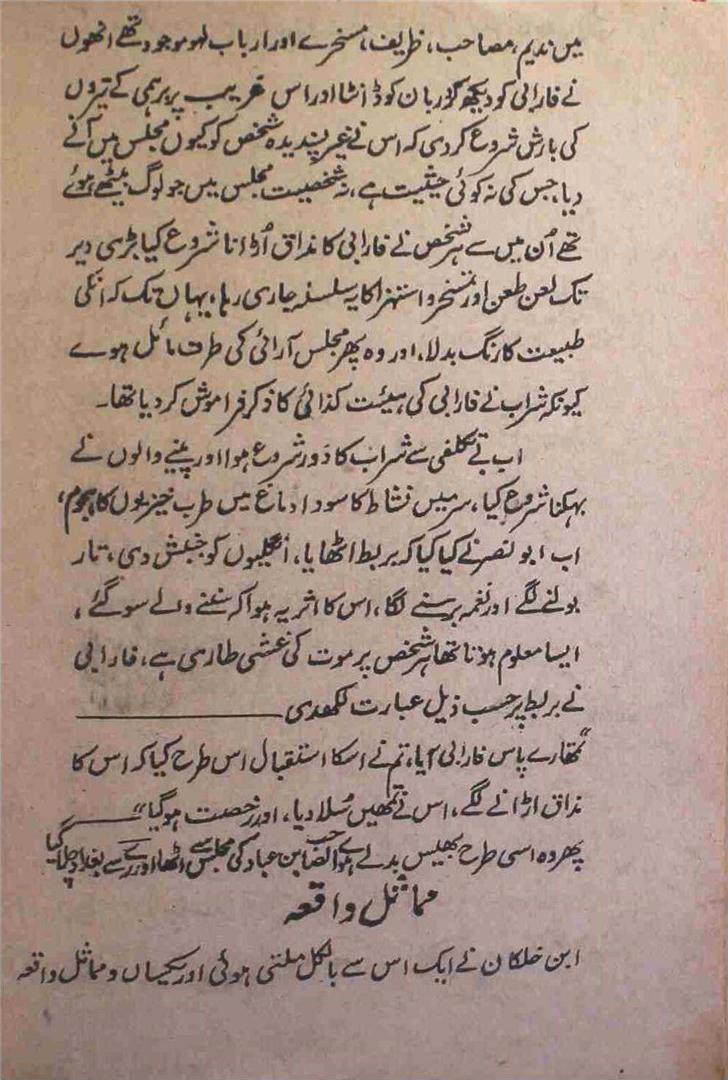 میں ندیم، مصاحب، ظریف، مسخرے اور ارباب لہو موجود تھے انھوں
نے فارابی کو دیکھ کر دربان کو ڈانٹا اور اس غریب پر برہمی کے تیروں
کی بارش شروع کر دی کہ اس نے غیر پسندیدہ شخص کو کیوں مجلس میں آنے
دیا، جس کی نہ کوئی حیثیت ہے، نہ شخصیت مجلس میں جو لوگ بیٹھے ہوئے
تھے اُن میں سے ہر شخص نے فارابی کا مذاق اُڑانا شروع کیا بڑی دیر
تک لعن طعن اور تمسخر و استہزا کا یہ سلسلہ جاری رہا، یہاں تک کہ انکی
طبیعت کا رنگ بدلا، اور وہ پھر مجلس آرائی کی طرف مائل ہوے
کیونکہ شراب نے فارابی کی ہیئت کذائی کا ذکر فراموش کر دیا تھا۔
اب بے تکلفی سے شراب کا دَور شروع ہوا اور پینے والوں نے
بہکنا شروع کیا، سر میں نشاط کا سودا دماغ میں طرب خیزیوں کا ہجوم،
اب ابو نصر نے کیا کیا کہ بربط اٹھایا، انگلیوں کو جنبش دی، تار
بولنے لگے اور نغمہ برسنے لگا، اس کا اثر یہ ہوا کہ سننے والے سو گئے،
ایسا معلوم ہوتا تھا ہر شخص پر موت کی غشی طاری ہے، فارابی
نے بربط پر حسب ذیل عبارت لکھدی ـــــــــــ
"تمھارے پاس فارابی آیا، تم نے اسکا استقبال اس طرح کیا کہ اس کا
مذاق اڑانے لگے، اس نے تمھیں سُلا دیا، اور رخصت ہو گیا"ــــ
پھر وہ اسی طرح بھیس بدلے ہوے صاحب ابن عباد کی مجلس سے اٹھا اور رے سے بغداد چلا گیا
مماثل واقعہ
ابن خلکان نے ایک اس سے بالکل ملتی ہوئی اور یکساں و مماثل واقعہ